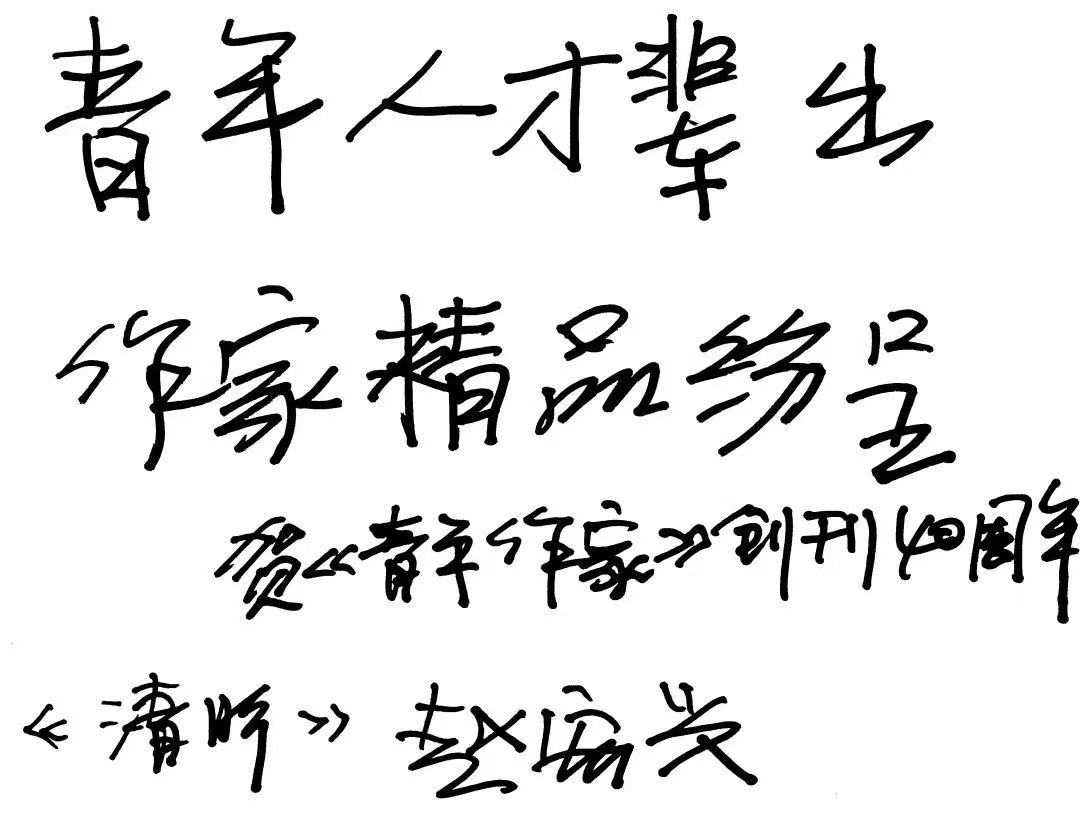 青年人才辈出
作家精品纷呈
贺《青年作家》创刊40周年
《清明》 赵宏兴